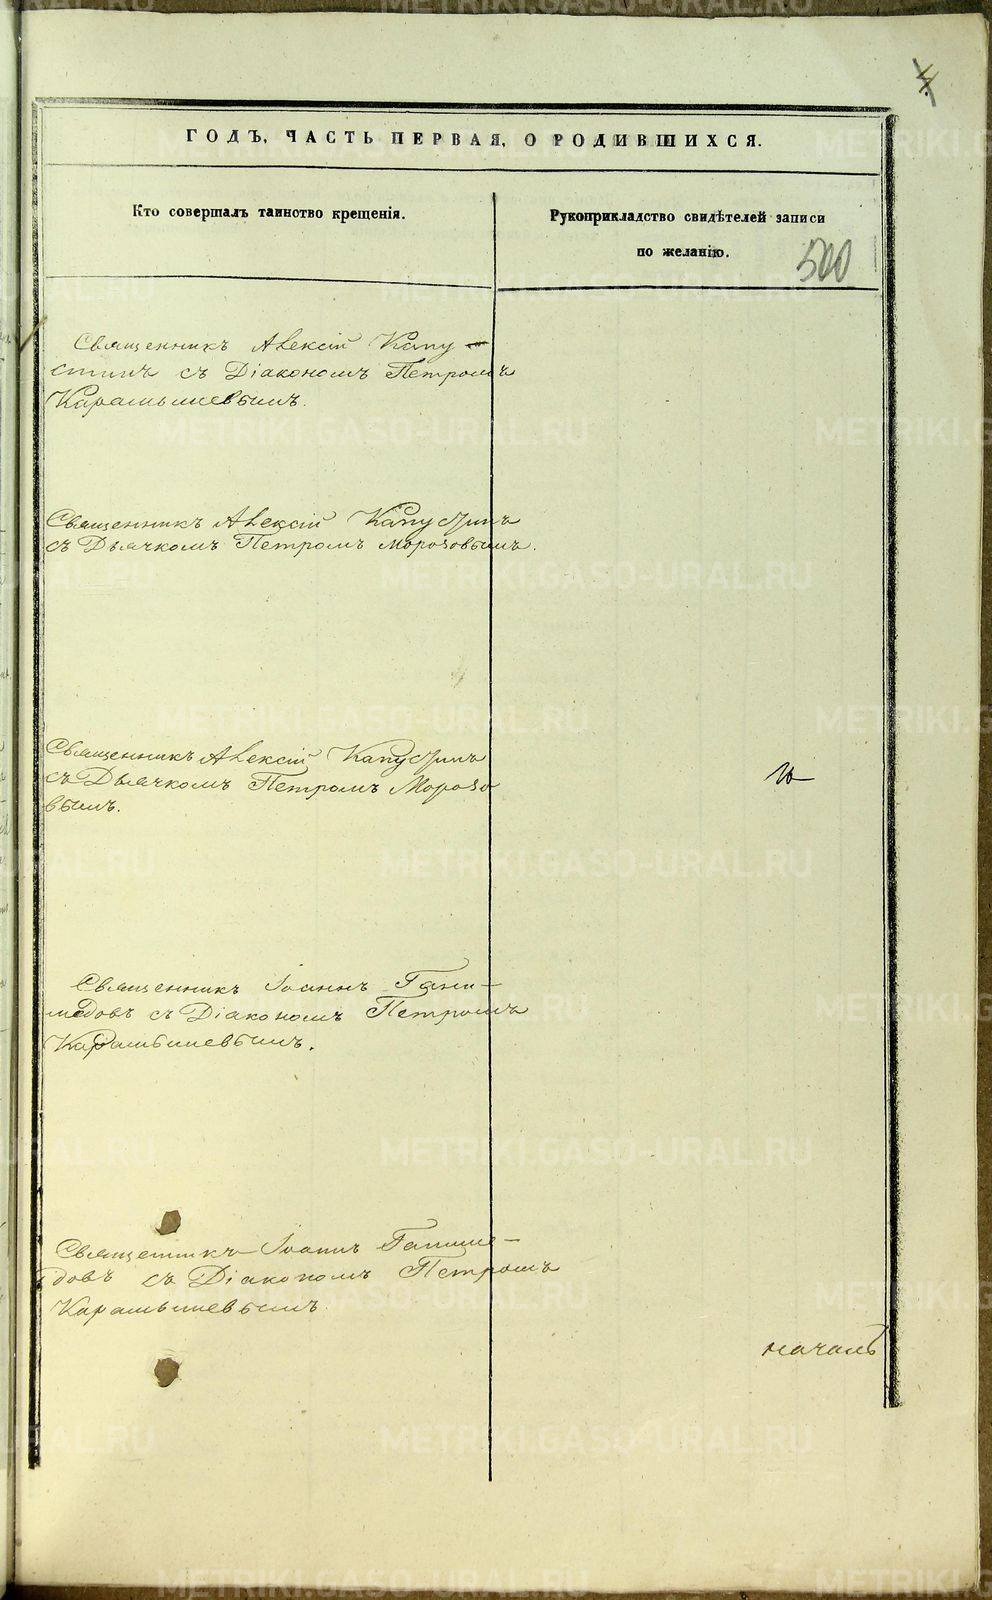 ГОДЪ, ЧАСТЬ ПЕРВАЯ, О РОДИВШИХСЯ.
Кто совершалъ таинство крещенія.
Рукоприкладство свидѣтелей записи
по желанію.
500
Священникъ Алексій Капу-
стинъ съ Діакономъ Петромъ
Карамышевымъ.
Священникъ Алексій Капустинъ
съ Дьячкомъ Петромъ Морозовымъ.
Священникъ Алексій Капустинъ
съ Дьячкомъ Петромъ Морозо
вымъ.
Священникъ Іоаннъ Гани-
медовъ съ Діакономъ Петромъ
Карамышевымъ.
Священникъ Іоаннъ Ганиме-
довъ съ Діакономъ Петромъ
Карамышевымъ.
METRIKI.GASO-URAL.RU